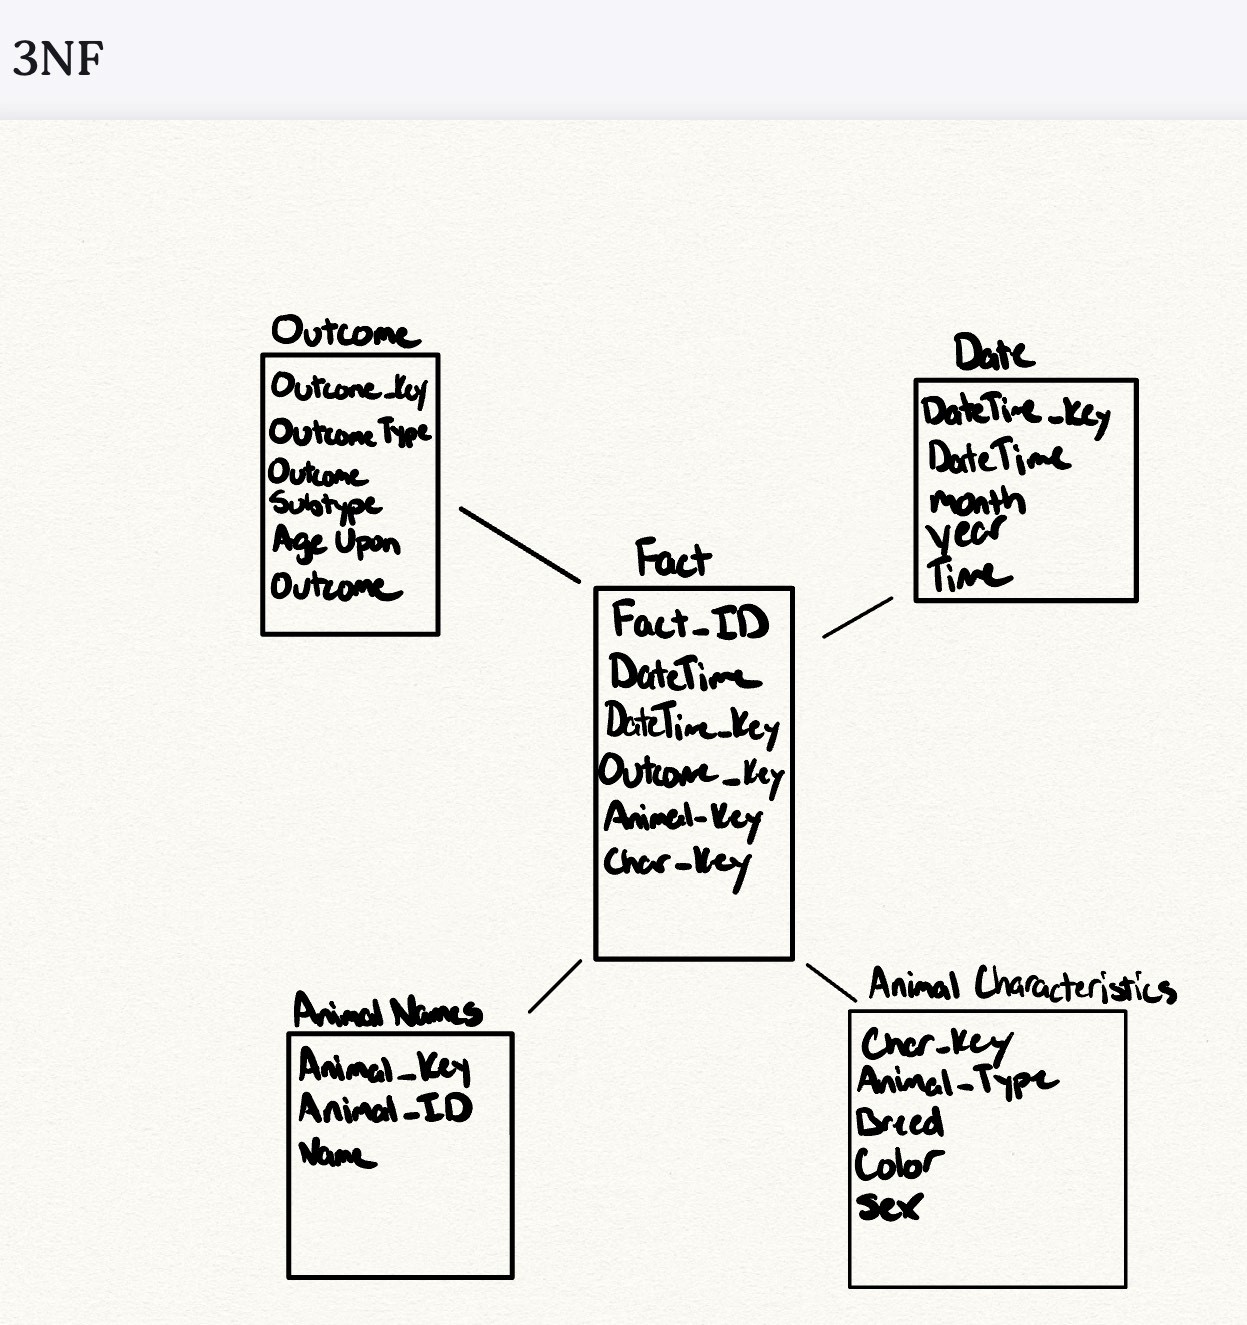 3NF
Outcome
Outcome_Key
Outcome Type
Outcome
Subtype
Age Upon
Outcome
Date
DateTime_Key
DateTime
month
year
Time
Fact
Fact_ID
DateTime
DateTime_Key
Outcome_Key
Animal-Key
Char-Key
Animal Names
Animal_Key
Animal_ID
Name
Animal Characteristics
Char_Key
Animal_Type
Breed
Color
Sex